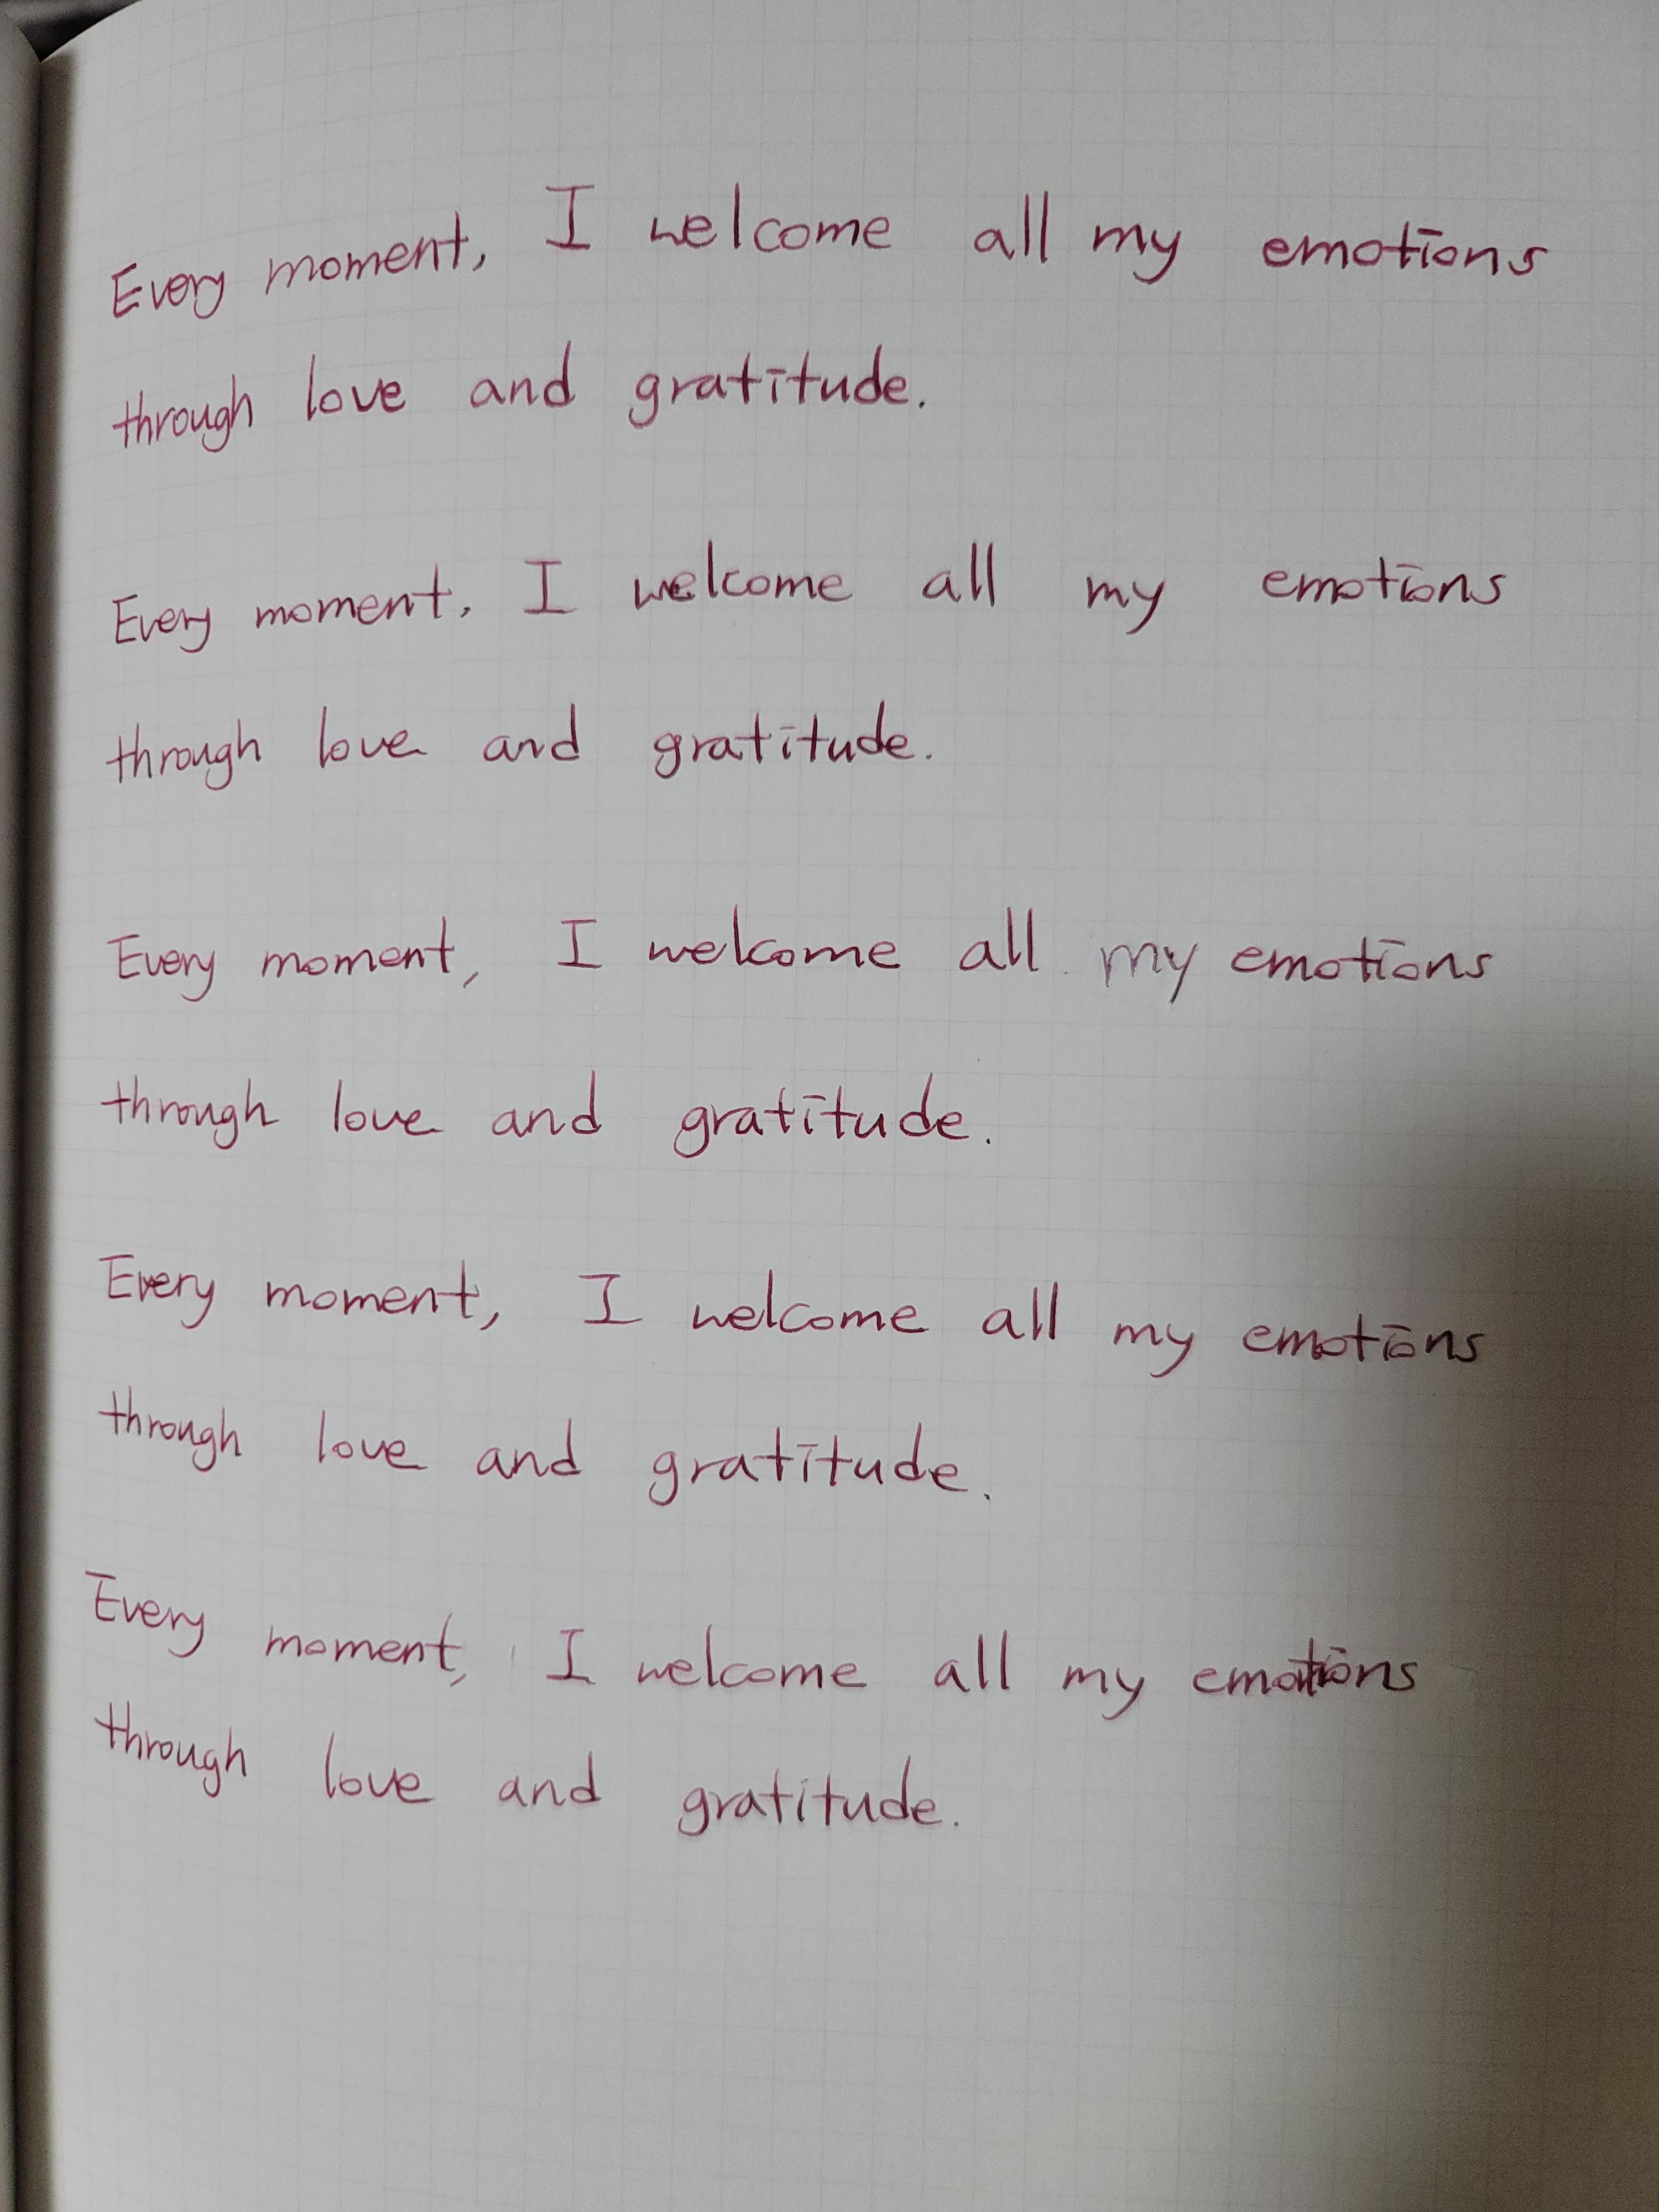 Every moment, I welcome all my emotions
through love and gratitude.
Every moment, I welcome all my emotions
through love and gratitude.
Every moment, I welcome all my emotions
through love and gratitude.
Every moment, I welcome all my emotions
through love and gratitude.
Every moment, I welcome all my emotions
through love and gratitude.